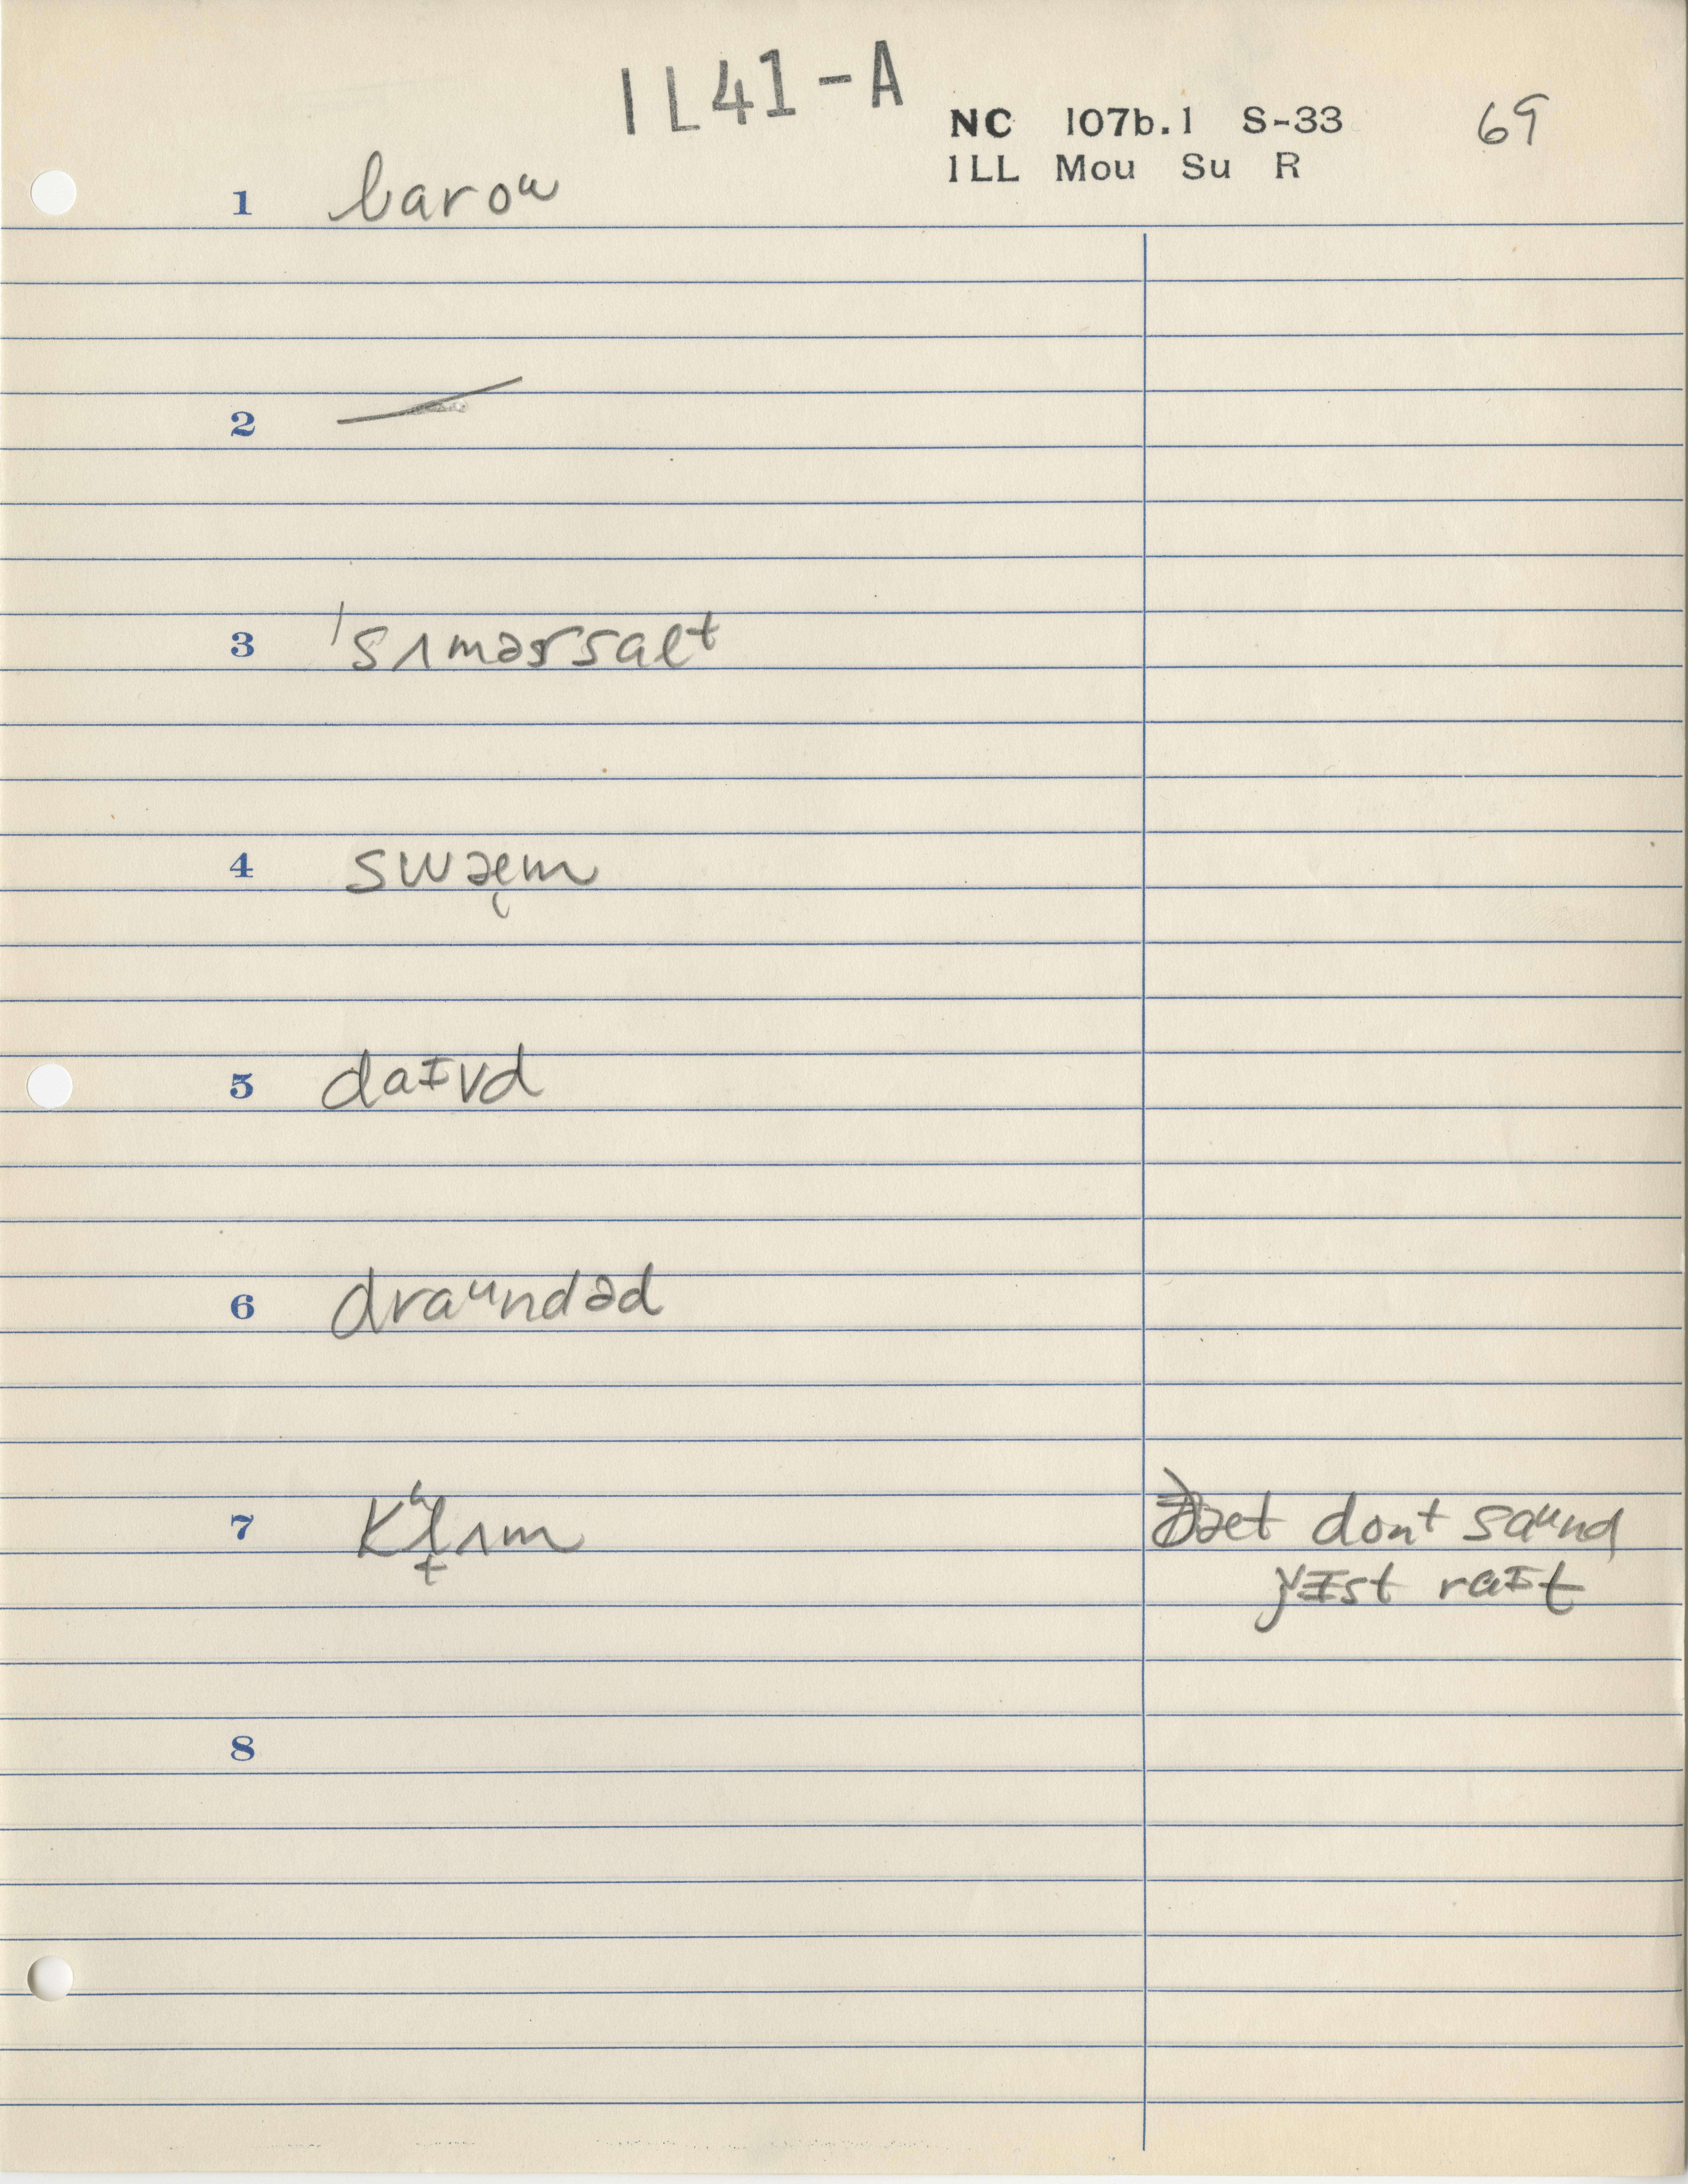 IL41-A
NC 107b.1 S-33 69
ILL Mou Su R
1 baroᵘ
2 —
3 ˈsʌmərsalt
4 swæm
5 daɪvd
6 draᵘndəd
7 kʰlʌm ðæt dont saᵘnd
jɪst raɪt
8